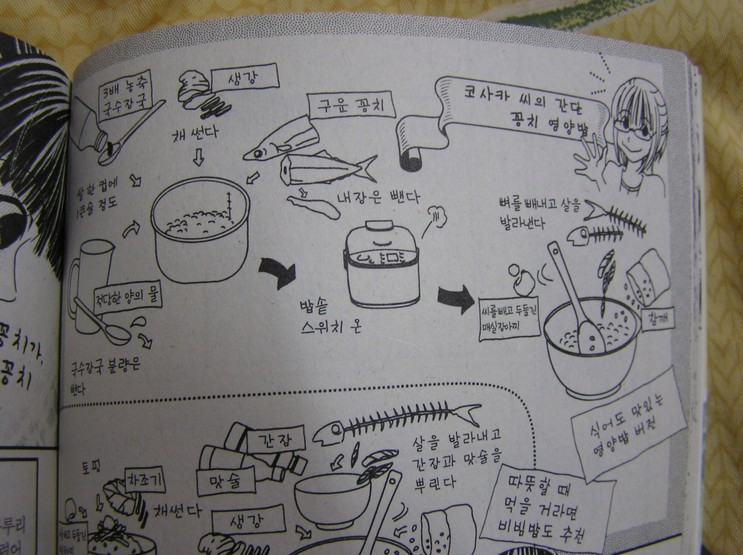 코사카 씨의 간단
꽁치 영양밥
3배 농축
국수장국
생강
채 썬다
구운 꽁치
내장은 뺀다
쌀 한 컵에
1큰술 정도
적당한 양의 물
국수장국 분량은
뺀다
밥솥
스위치 온
뼈를 빼내고 살을
발라낸다
씨를 빼고 두들긴
매실장아찌
참깨
식어도 맛있는
영양밥 버전
꽁치가,
꽁치
토핑
차조기
채썬다
간장
맛술
생강
살을 발라내고
간장과 맛술을
뿌린다
따뜻할 때
먹을 거라면
비빔밥도 추천